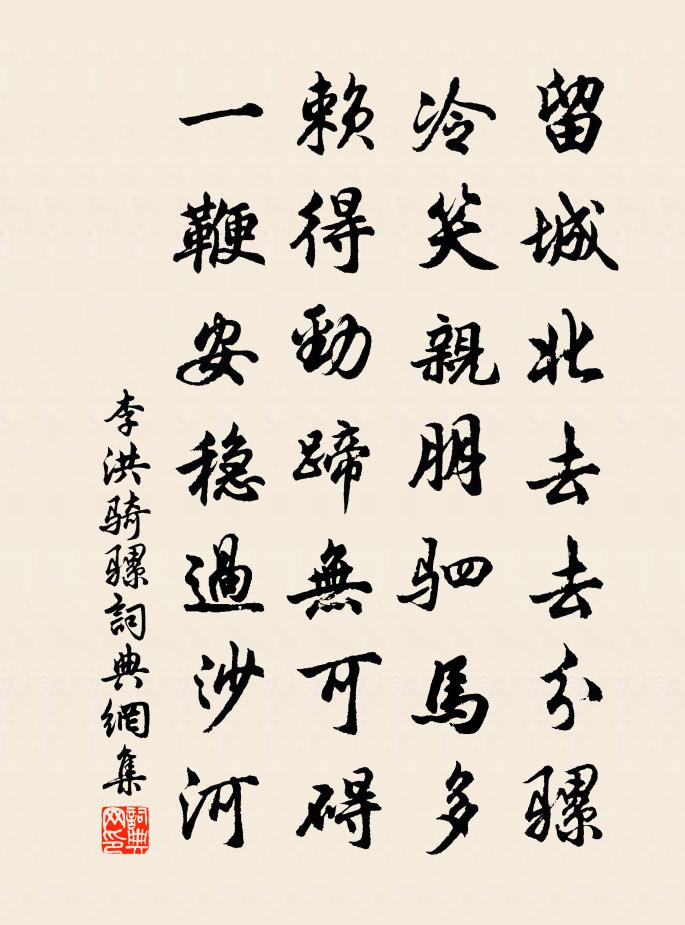 留城北去去分骡
冷笑親朋驷馬多
赖得勁蹄無可碍
一鞭安稳過沙河
李洪骑骡詞典網集
詞典网印